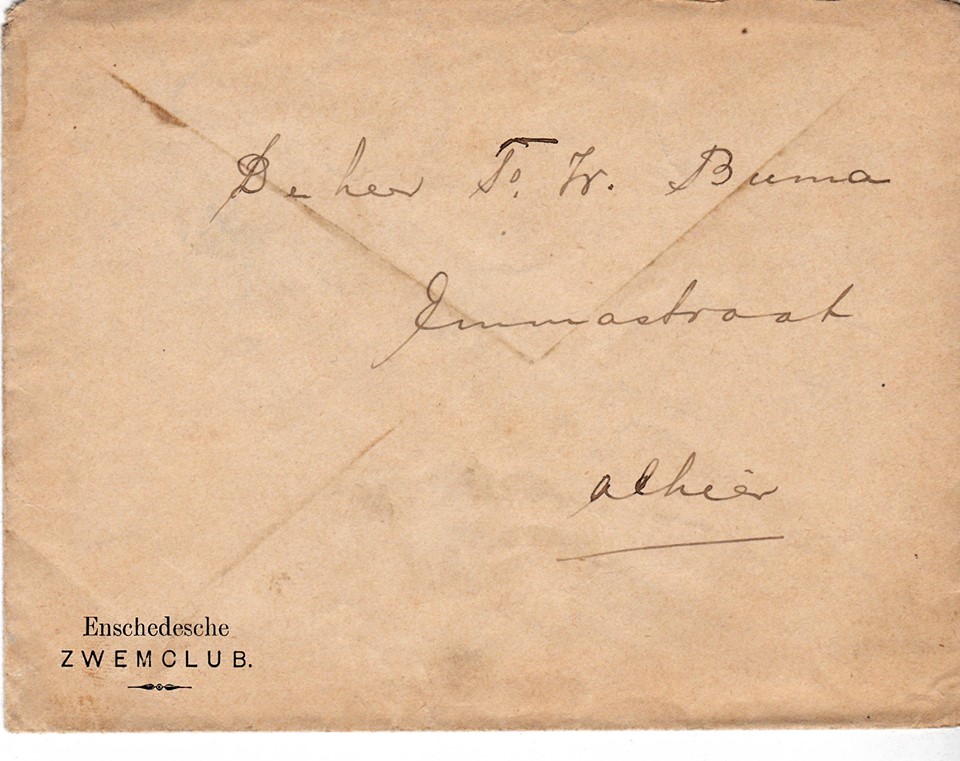 De heer To. W. Buma
Emmastraat
alhier
Enschedesche
ZWEMCLUB.